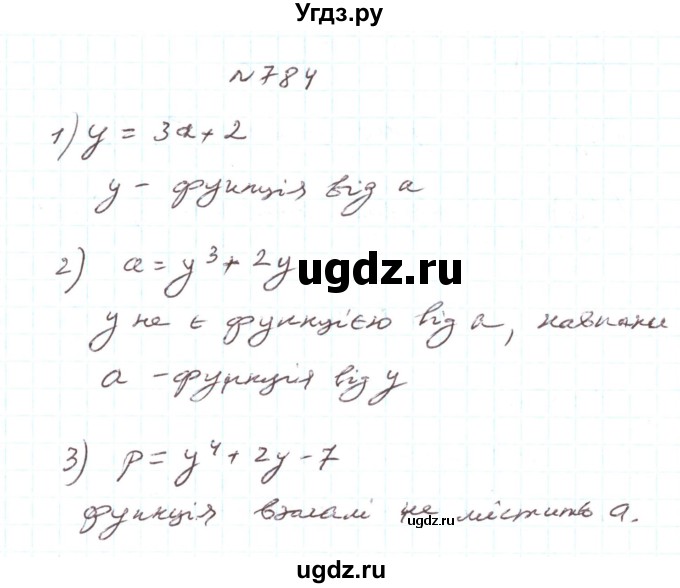 Угдз.ру
№784
1) y = 3a + 2
y - функція від a
2) a = y³ + 2y
ugdz.ru
y не є функцією від a, навпаки
a - функція від y
3) p = y⁴ + 2y - 7
функція взагалі не містить a.
ugdz.ru
ugdz.ru